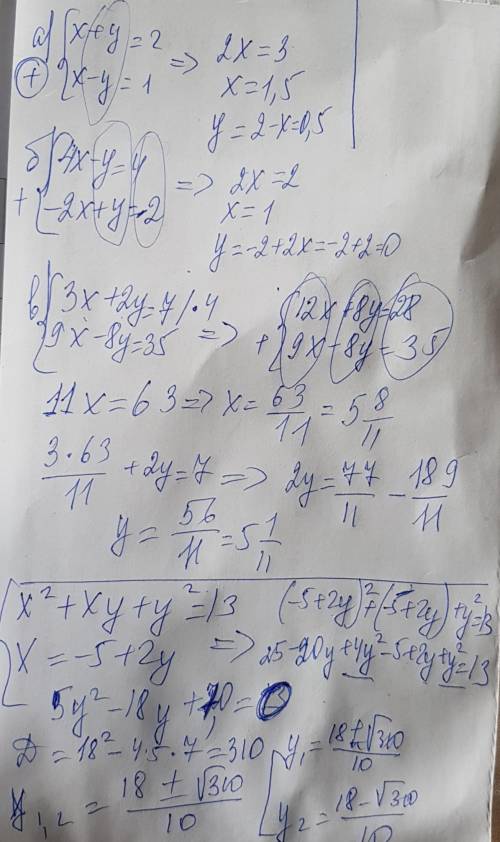 а) { x+y=2
+ { x-y=1 => 2x=3
x=1,5
y=2-x=0,5
б) { 4x-y=4
+ { -2x+y=-2 => 2x=2
x=1
y=-2+2x=-2+2=0
в) { 3x+2y=7 /·4
{ 9x-8y=35 => + { 12x+8y=28
{ 9x-8y=35
11x=63 => x=63/11=5 8/11
3·63/11+2y=7 => 2y=77/11-189/11
y=56/11=5 1/11
{ x²+xy+y²=13
{ x=-5+2y => (-5+2y)²+(-5+2y)+y²=13
25-20y+4y²-5+2y+y²=13
5y²-18y+7=0
D=18²-4·5·7=310
y₁,₂=(18±√310)/10
[ y₁=(18+√310)/10
[ y₂=(18-√310)/10